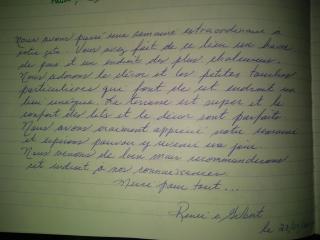 Nous avons passé une semaine extraordinaire à
votre gîte. Vous avez fait de ce lieu un havre
de paix et un endroit des plus chaleureux.
Nous adorons le décor et les petites touches
particulières que font de cet endroit un
lieu unique. La terrasse est super et le
confort des lits et le decor sont parfaits
Nous avons vraiment apprécié notre semaine
et espérons pouvoir y revenir un jour.
Nous venons de loin mais recommanderons
cet endroit à nos connaissances.
Merci pour tout...
Renée & Gilbert
le